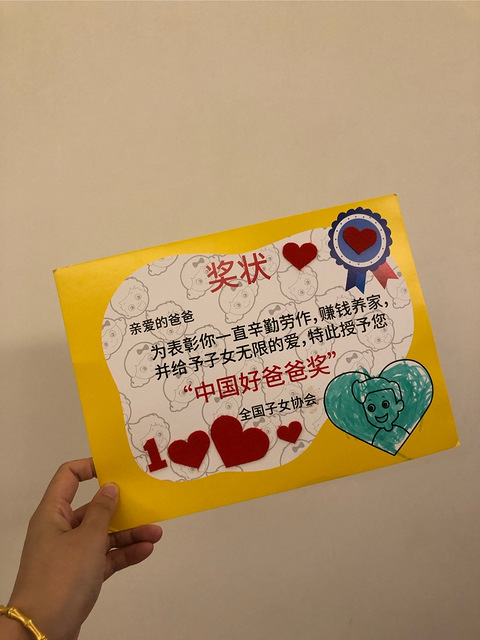 奖状
亲爱的爸爸
为表彰你一直辛勤劳作,赚钱养家,
并给予子女无限的爱,特此授予您
“中国好爸爸奖”
全国子女协会
1